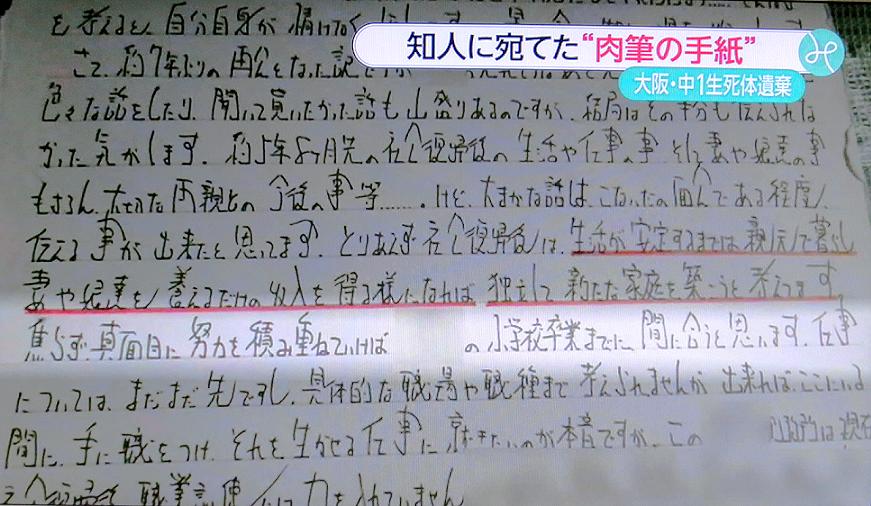 知人に宛てた“肉筆の手紙”
大阪・中1生死体遺棄
を考えると、自分自身が情けなく
さて、約7年ぶりの再会となった訳ですが
色々な話をしたり、聞いて貰いたかった話も山盛りあるのですが、結局はその半分も伝えられな
かった気がします。約5年8ヶ月先の社会復帰後の生活や仕事の事、そして妻や娘達の事
もちろん、大切な両親との今後の事等……。けど、大まかな話は、こないだの面会である程度、
伝える事が出来たと思ってます。とりあえず社会復帰後は、生活が安定するまでは親元で暮らし
妻や娘達を養えるだけの収入を得る様になれば、独立して新たな家庭を築こうと考えてます。
焦らず、真面目に努力を積み重ねていけば の小学校卒業までに、間に合うと思います。仕事
については、まだまだ先ですし、具体的な職場や職種まで考えられませんが、出来れば、ここにいる
間に、手に職をつけ、それを生かせる仕事に就きたいのが本音ですが、この は現在
力を入れていません